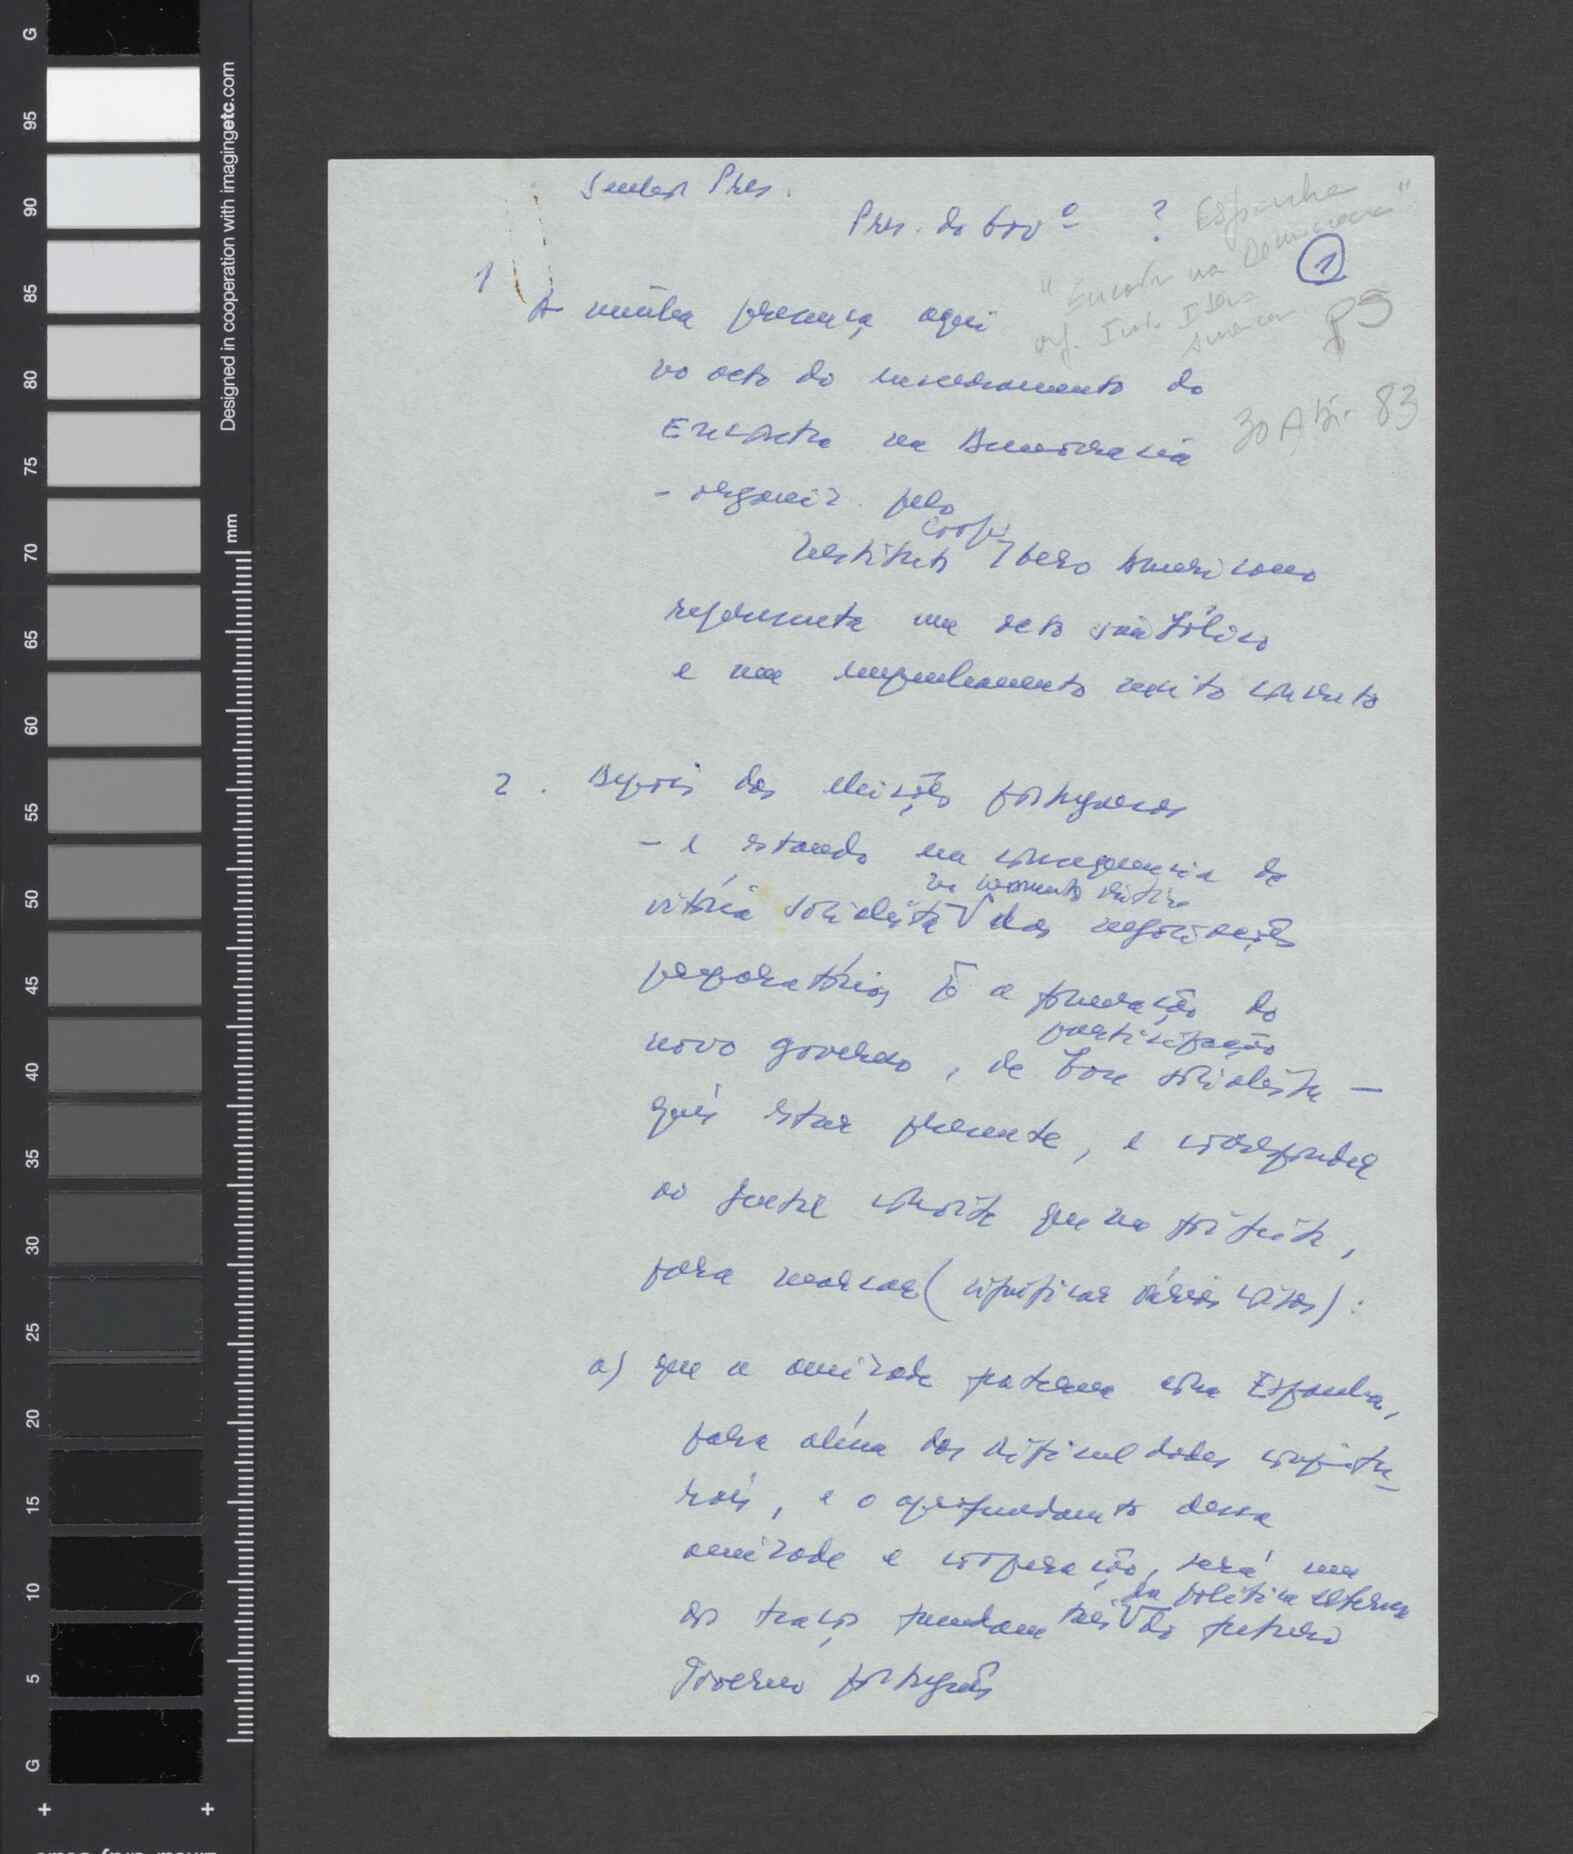 Senhor Pres.
Pres. do Govº ?
Espanha
"Encontro na Democracia"
org. Inst. Ibero
American.
1
PS
30 Abr. 83
1
A minha presença aqui
no acto do encerramento do
Encontro na Democracia
- organiz. pelo
Instituto coop. Ibero Americano
representa um acto simbólico
e um empenhamento muito concreto
2. Depois das eleições portuguesas
- e estando em consequencia da
vitória socialista no momento das negociações
preparatórias p^a a formação do
novo governo, de participação socialista -
quis estar presente, e corresponder
ao gentil convite que me foi feito,
para marcar (significar várias coisas):
a) que a amizade fraterna com Espanha,
para além das dificuldades conjuntu-
rais, e o aprofundamento dessa
amizade e cooperação, será um
dos traços fundamentais da politica externa do futuro
Governo português
G 95 90 85 80 75 70 65 60 55 50 45 40 35 30 25 20 15 10 5 G
mm
Designed in cooperation with imagingetc.com